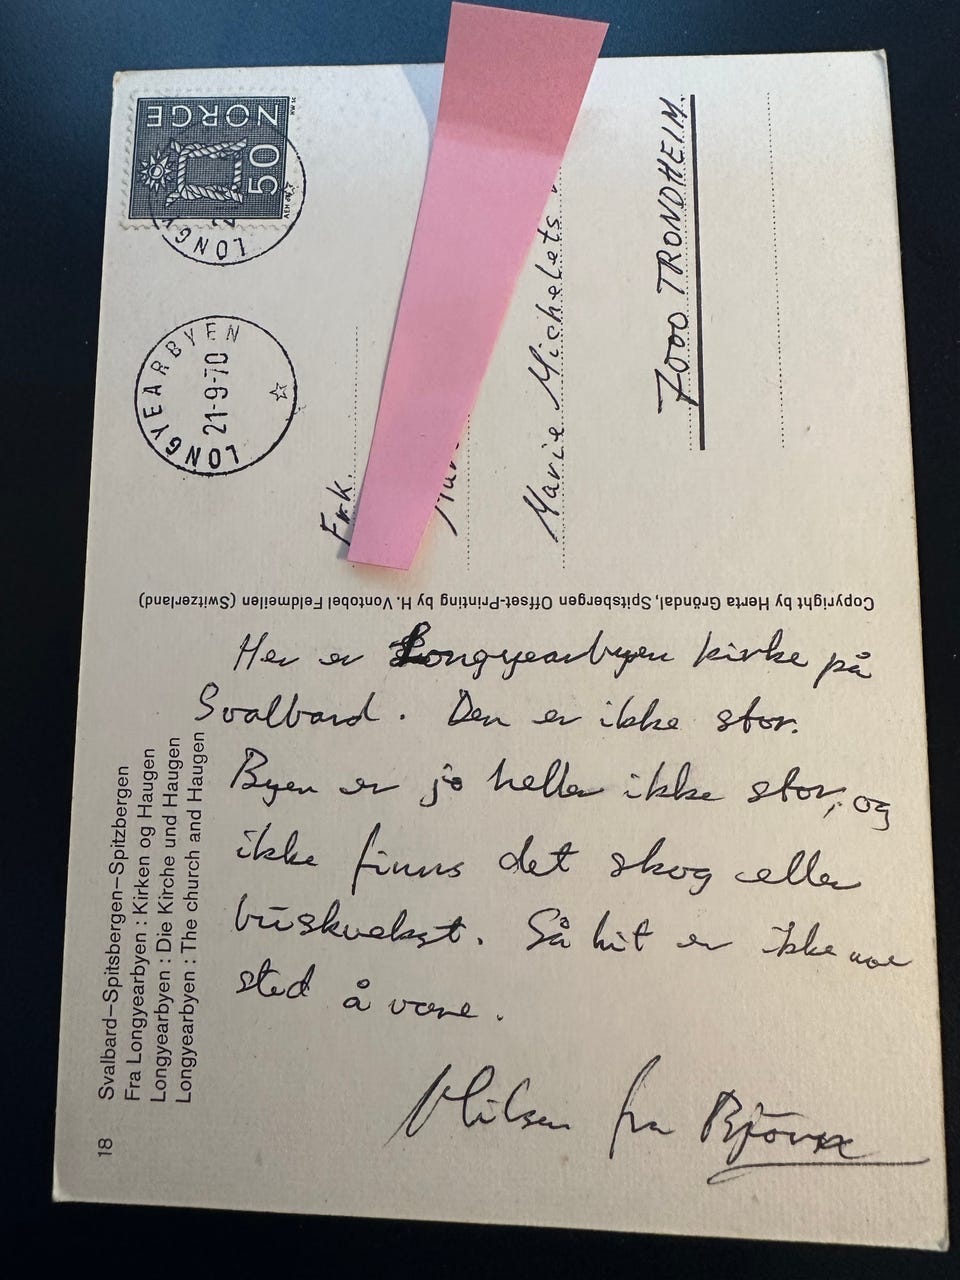 Her er Longyearbyen kirke på
Svalbard. Den er ikke stor.
Byen er jo heller ikke stor, og
ikke finns det skog eller
buskvekst. Så hit er ikke noe
sted å være.
Hilsen fra Bjørn
NORGE
50
LONGY
LONGYEARBYEN
21-9-70
Frk.
Marie Michelets
7000 TRONDHEIM.
Copyright by Herta Gröndal, Spitsbergen Offset-Printing by H. Vontobel Feldmeilen (Switzerland)
Svalbard–Spitsbergen–Spitzbergen
Fra Longyearbyen : Kirken og Haugen
Longyearbyen : Die Kirche und Haugen
Longyearbyen : The church and Haugen
18